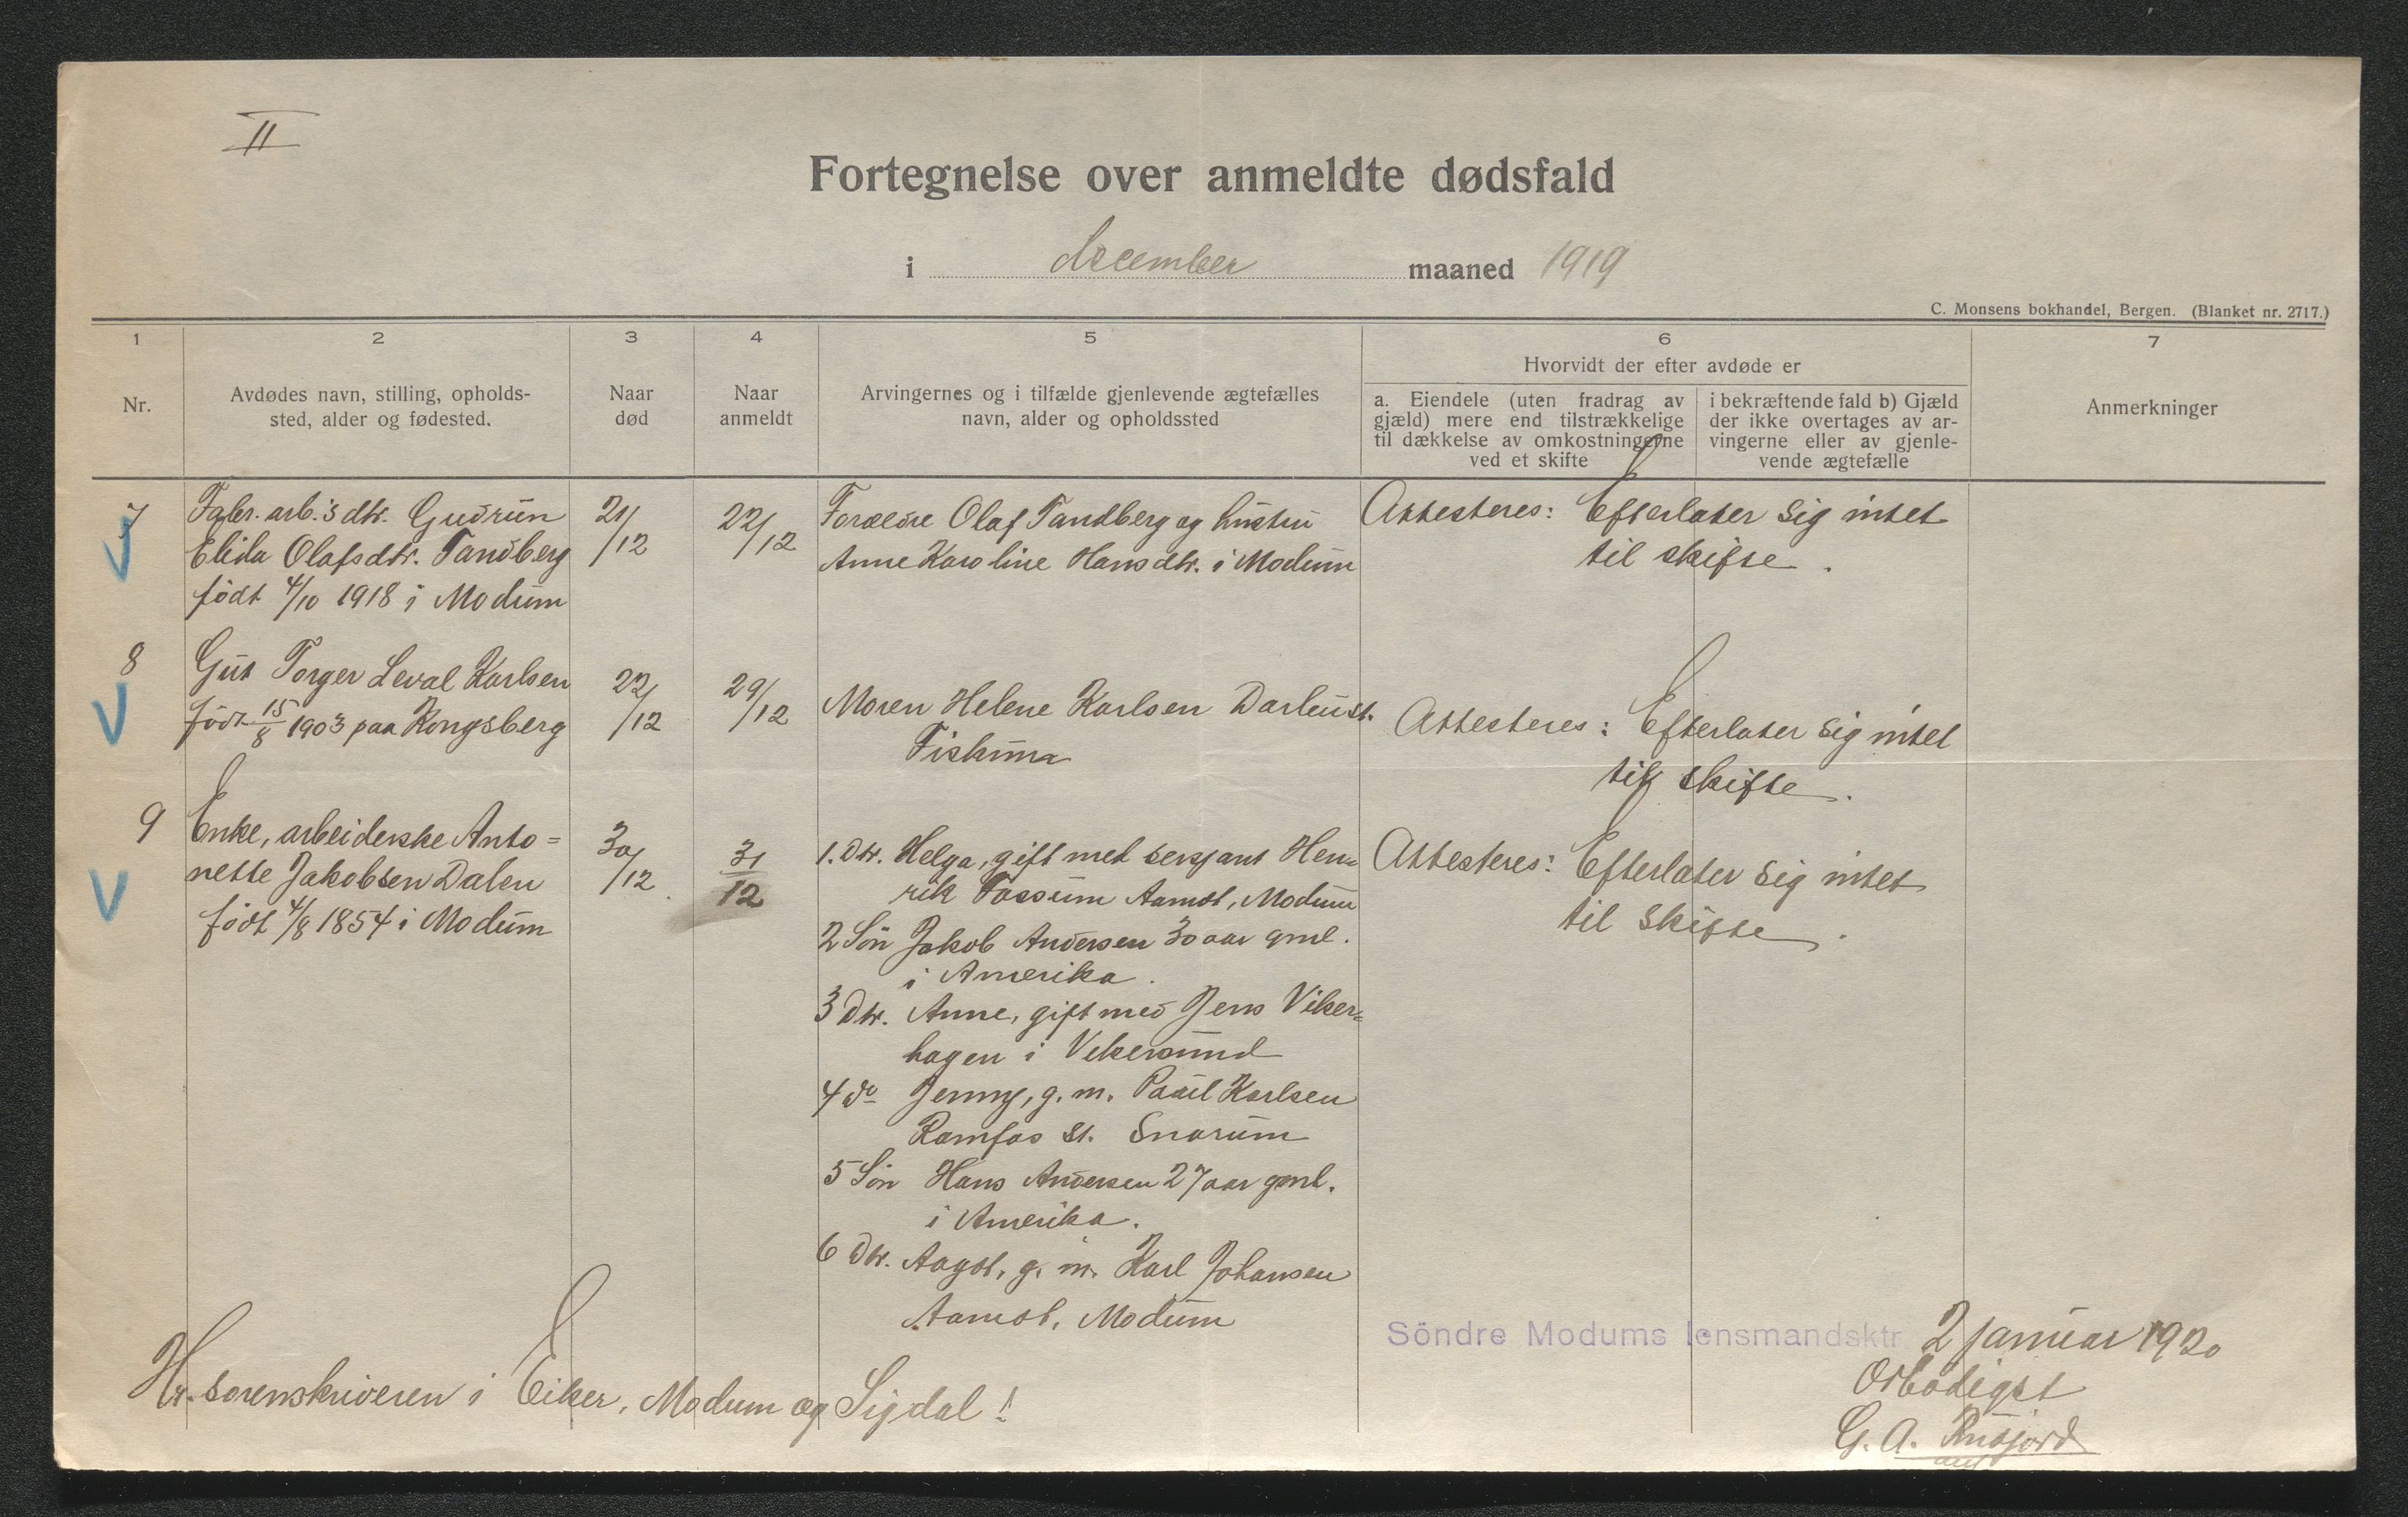 II
Fortegnelse over anmeldte dødsfald
i december maaned 1919
C. Monsens bokhandel, Bergen. (Blanket nr. 2717.)
1 2 3 4 5 6 7
Hvorvidt der efter avdøde er
Nr.
Avdødes navn, stilling, opholds-
sted, alder og fødested.
Naar
død
Naar
anmeldt
Arvingernes og i tilfælde gjenlevende ægtefælles
navn, alder og opholdssted
a. Eiendele (uten fradrag av
gjæld) mere end tilstrækkelige
til dækkelse av omkostningerne
ved et skifte
i bekræftende fald b) Gjæld
der ikke overtages av ar-
vingerne eller av gjenle-
vende ægtefælle
Anmerkninger
7
Fabr. arb.s dtr. Gudrun
Elida Olafsdtr. Tandberg
födt 4/10 1918 i Modum
21/12
22/12
Forældre Olaf Tandberg og hustru
Anne Karoline Hansdtr. i Modum
Attesteres: Efterlater sig intet
til skifte.
8
Gut Torger Leval Karlsen
födt 15/8 1903 paa Kongsberg
22/12
29/12
Moren Helene Karlsen Darbu st.
Fiskum
Attesteres: Efterlater sig intet
til skifte.
9
Enke, arbeiderske Anto=
nette Jakobsen Dalen
födt 4/8 1854 i Modum
30/12
31/12
1. Dtr. Helga, gift med sersjant Hen=
rik Fossum Aamot, Modum
2 Sön Jakob Andersen 30 aar gml.
i Amerika.
3 Dtr. Anne, gift med Jens Viker=
hagen i Vikersund
4 do Jenny, g. m. Paul Karlsen
Ramfos st. Snarum
5 Sön Hans Andersen 27 aar gml.
i Amerika.
6 Dtr. Aagot, g. m. Karl Johansen
Aamot, Modum
Attesteres: Efterlater sig intet
til skifte.
Söndre Modums lensmandsktr 2 januar 1920
Ærbödigst
G. A.
Hr. sorenskriveren i Eiker, Modum og Sigdal!